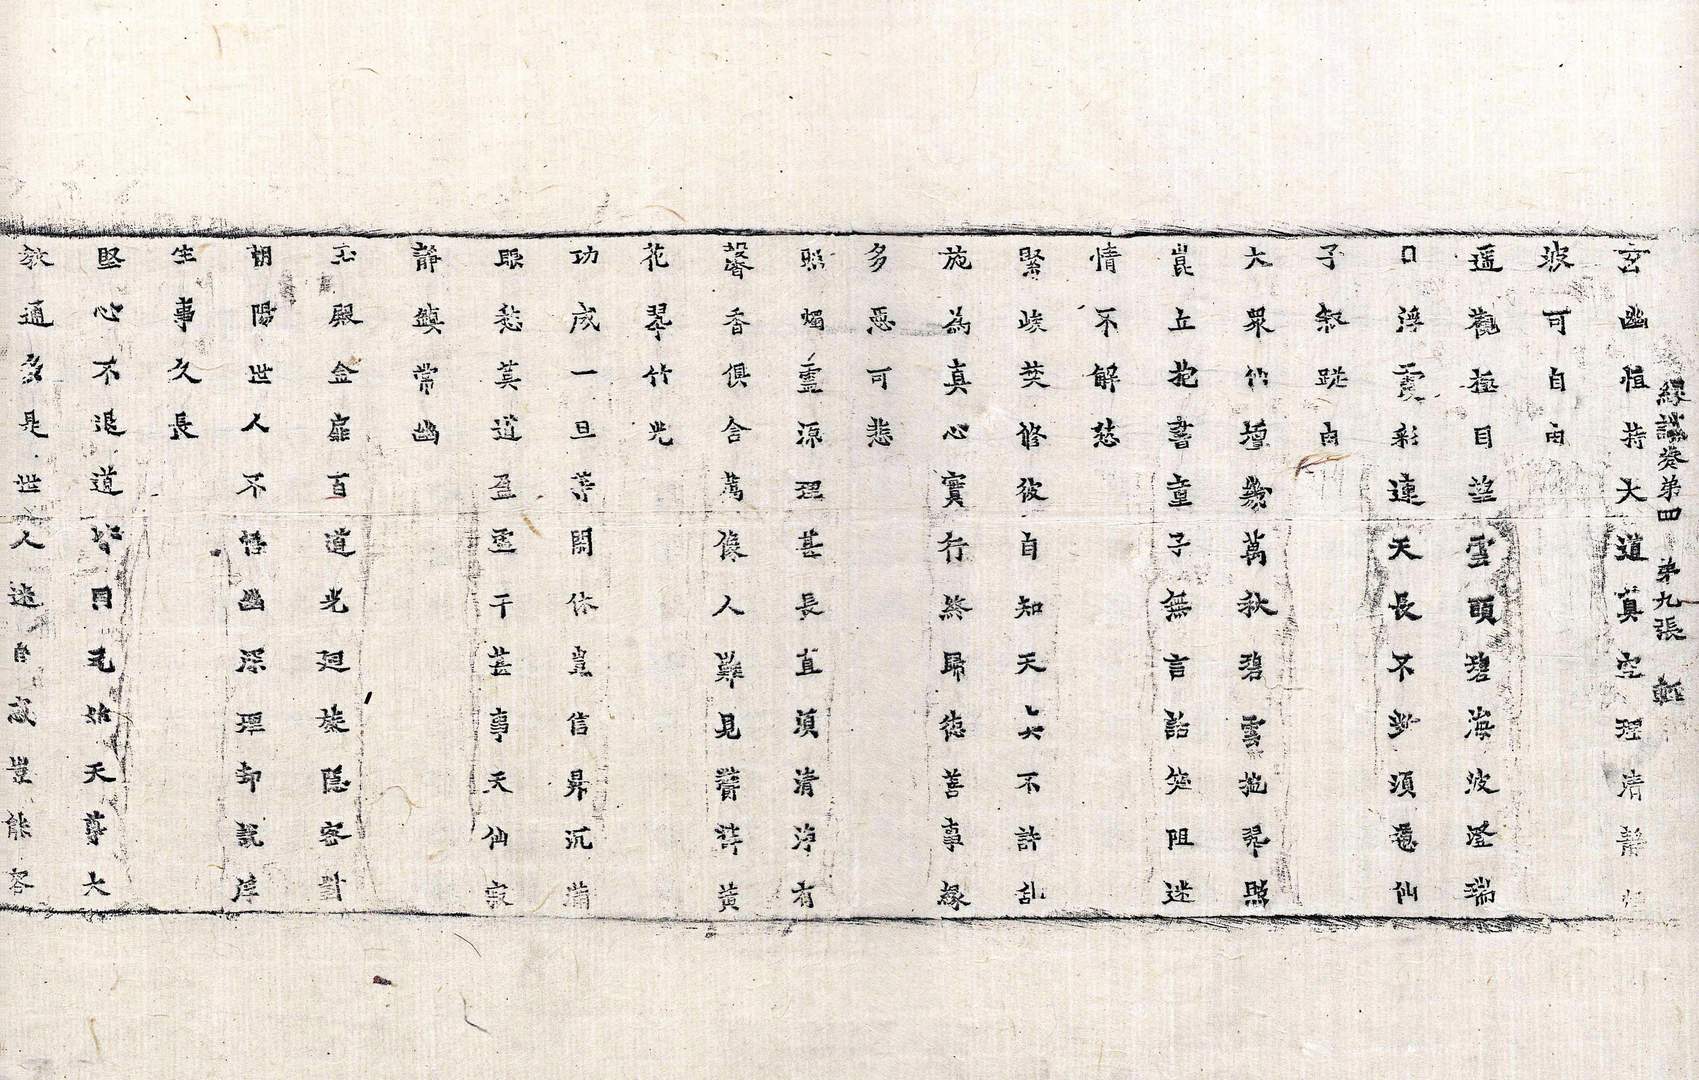 緣識卷第四 第九張
玄幽恒持大道真空理清靜
波可自由
遥觀極目望雲頭碧海波澄瑞
口浮霞彩連天長不夢須還仙
子敘蹤由
大眾竹壇幾萬秋碧雲拋翠照
崑丘抱書童子無言語笑阻迷
情不解愁
緊峻焚修彼自知天 不許乱
施為真心實行終歸德善事緣
多惡可悲
照燭靈源理甚長直須清淨有
馨香俱含萬像人難見 黃
花翠竹光
功成一旦等閑休豈信昇沉滿
眼愁莫道盈虛干甚事天仙寂
靜鎮常幽
玉殿金扉百道光廻旋隱密對
朝陽世人不悟幽深理却說浮
生事久長
堅心不退道 目 天尊大
教通多是世人迷自 豈能容